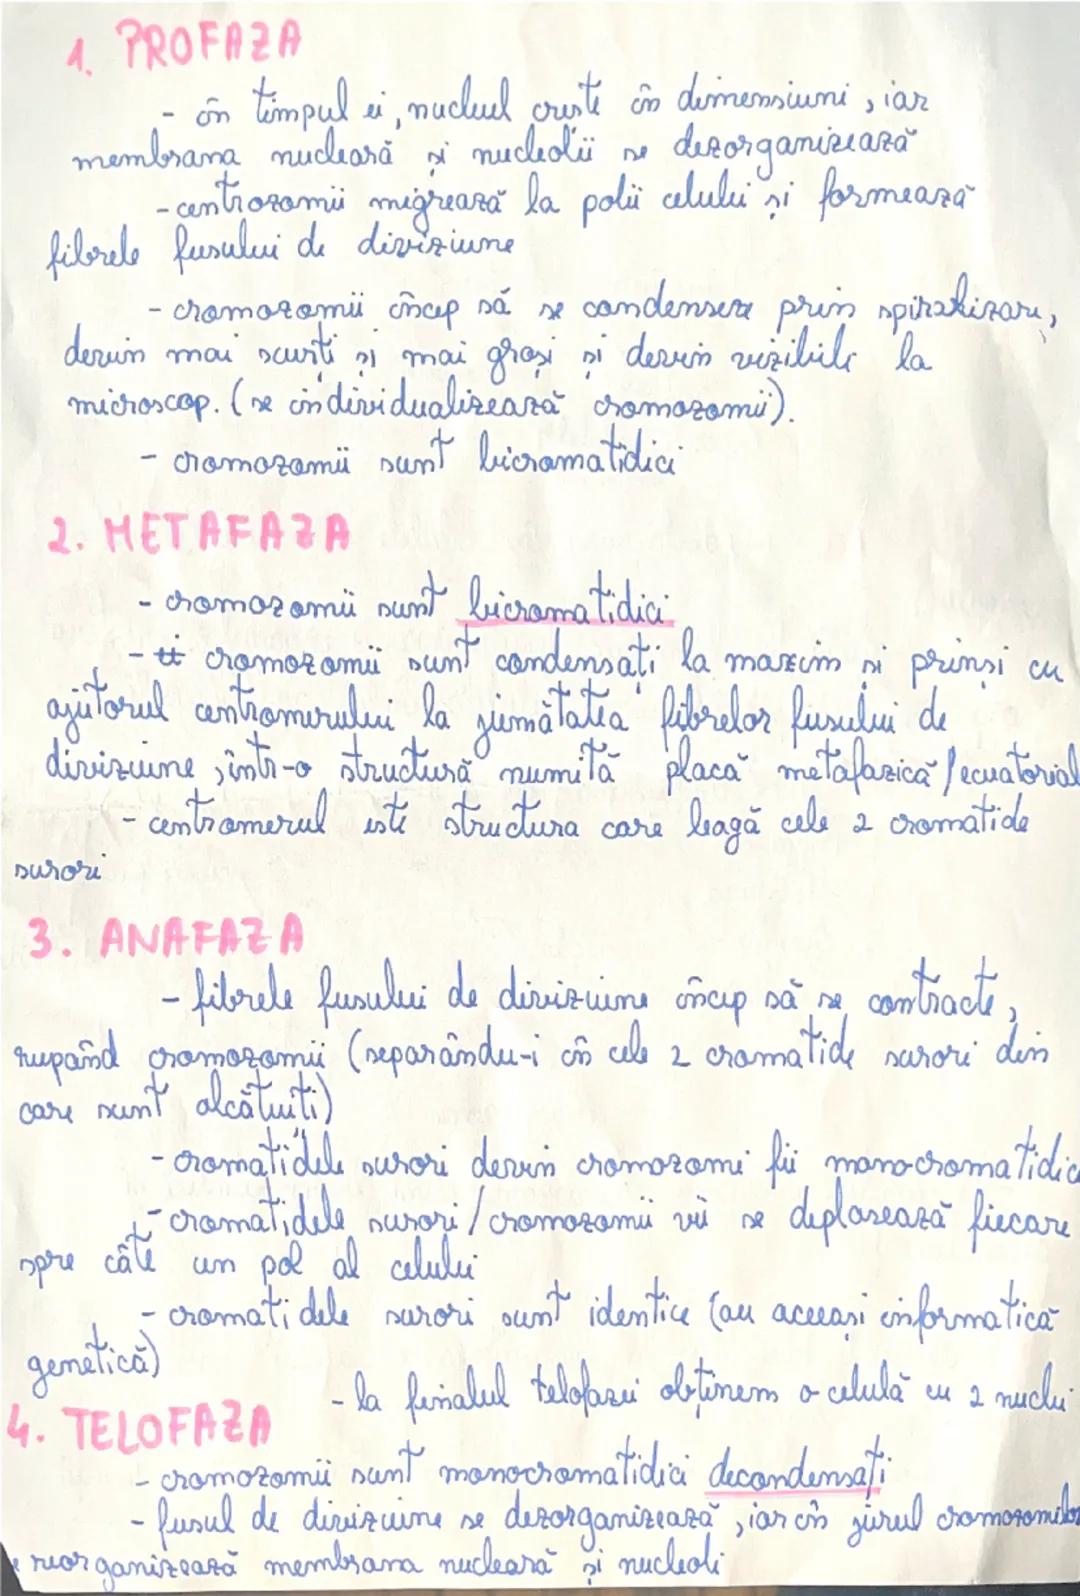 1. PROFAZA
- în timpul ei, nucleul crește în dimensiuni, iar
membrana nucleară și nucleolii se dezorganizează
- centrozomii migrează la polii celulei și formează
fibrele fusului de diviziune
- cromozomii încep să se condenseze prin spiralizare,
devin mai scurți și mai groși și devin vizibili la
microscop. (se individualizează cromozomii).
- cromozomii sunt bicromatidici
2. METAFAZA
- cromozomii sunt bicromatidici
- cromozomii sunt condensați la maxim și prinși cu
ajutorul centromerului la jumătatea fibrelor fusului de
diviziune, într-o structură numită placă metafazică/ecuatorial
- centromerul este structura care leagă cele 2 cromatide
surori
3. ANAFAZA
- fibrele fusului de diviziune încep să se contracte,
rupând cromozomii (separându-i în cele 2 cromatide surori din
care sunt alcătuiți)
- cromatidele surori devin cromozomi fii monocromatidic
- cromatidele surori/cromozomii vii se deplasează fiecare
spre câte un pol al celulei
- cromatidele surori sunt identice (au aceeași informatică
genetică)
- la finalul telofazei obținem o celulă cu 2 nuclei
4. TELOFAZA
- cromozomii sunt monocromatidici decondensați
- fusul de diviziune se dezorganizează, iar în jurul cromozomilor
reorganizează membrana nucleară și nucleoli